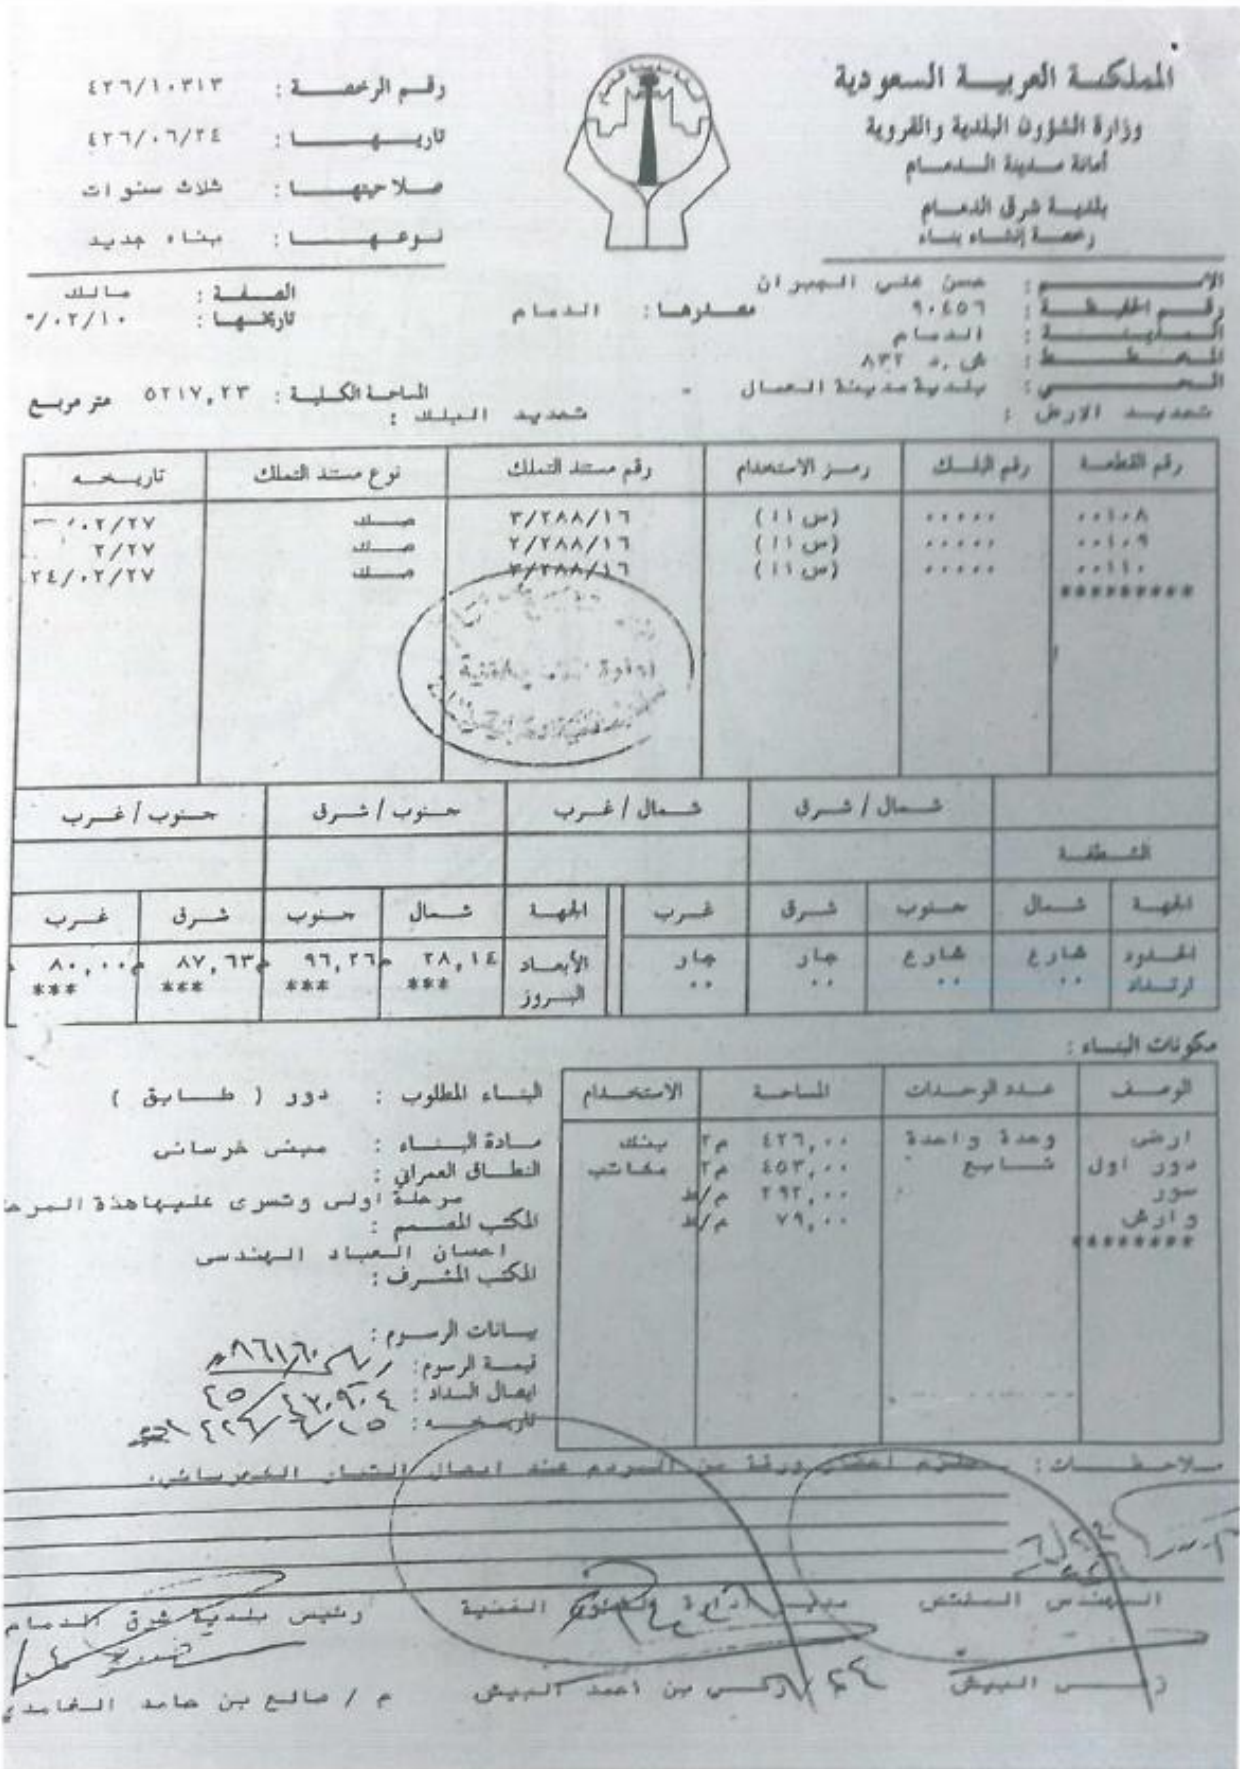 المملكة العربية السعودية
وزارة الشؤون البلدية والقروية
أمانة مدينة الدمام
بلدية شرق الدمام
رخصة إنشاء بناء
رقم الرخصة : ٤٢٦/١٠٣١٣
تاريخها : ٤٢٦/٠٦/٢٤
صلاحيتها : ثلاث سنوات
نوعها : بناء جديد
الاسم : حسن علي الجبران
الصفة : مالك
رقم الحفيظة : ٩٠٤٥٦ مصدرها : الدمام تاريخها : ٠٢/١٠/
المدينة : الدمام
المخطط : ش.د ٨٣٢
الحي : بلدية مدينة العمال -
المساحة الكلية : ٥٢١٧,٢٣ متر مربع
تحديد الارض : تحديد البلك :
رقم القطعة رقم البلك رمز الاستخدام رقم مستند التملك نوع مستند التملك تاريخه
٠٠١٠٨ ٠٠٠٠٠ (س ١١) ٣/٢٨٨/١٦ صك ٠٢/٢٧/
٠٠١٠٩ ٠٠٠٠٠ (س ١١) ٢/٢٨٨/١٦ صك ٢/٢٧
٠٠١١٠ ٠٠٠٠٠ (س ١١) ٣/٢٨٨/١٦ صك ٢٤/٠٢/٢٧
*********
شمال / شرق شمال / غرب جنوب / شرق جنوب / غرب
الشطفة
الجهة شمال جنوب شرق غرب الجهة شمال جنوب شرق غرب
الحدود شارع شارع جار جار الأبعاد ٢٨,١٤ م ٩٦,٢٦ م ٨٧,٦٣ م ٨٠,٠٠
ارتداد ٠٠ ٠٠ ٠٠ ٠٠ البروز *** *** *** ***
مكونات البناء :
الوصف عدد الوحدات المساحة الاستخدام
ارضي وحدة واحدة ٤٢٦,٠٠ م٢ بنك
دور اول تابع ٤٥٣,٠٠ م٢ مكاتب
سور ٢٩٢,٠٠ م/ط
وارش ٧٩,٠٠ م/ط
********
البناء المطلوب : دور ( طابق )
مادة البناء : مبنى خرساني
النطاق العمراني :
مرحلة اولى وتسرى عليها هذة المرح
المكتب المصمم :
احسان العباد الهندسى
المكتب المشرف :
بيانات الرسوم :
قيمة الرسوم :
ايصال السداد :
تاريخه :
ملاحظات : ملزم احضار ورقة من المردم عند ايصال التيار الكهربائي.
المهندس المختص مدير ادارة الفنية رئيس بلدية شرق الدمام
البيش بن احمد البيش م / صالح بن حامد الغامدي